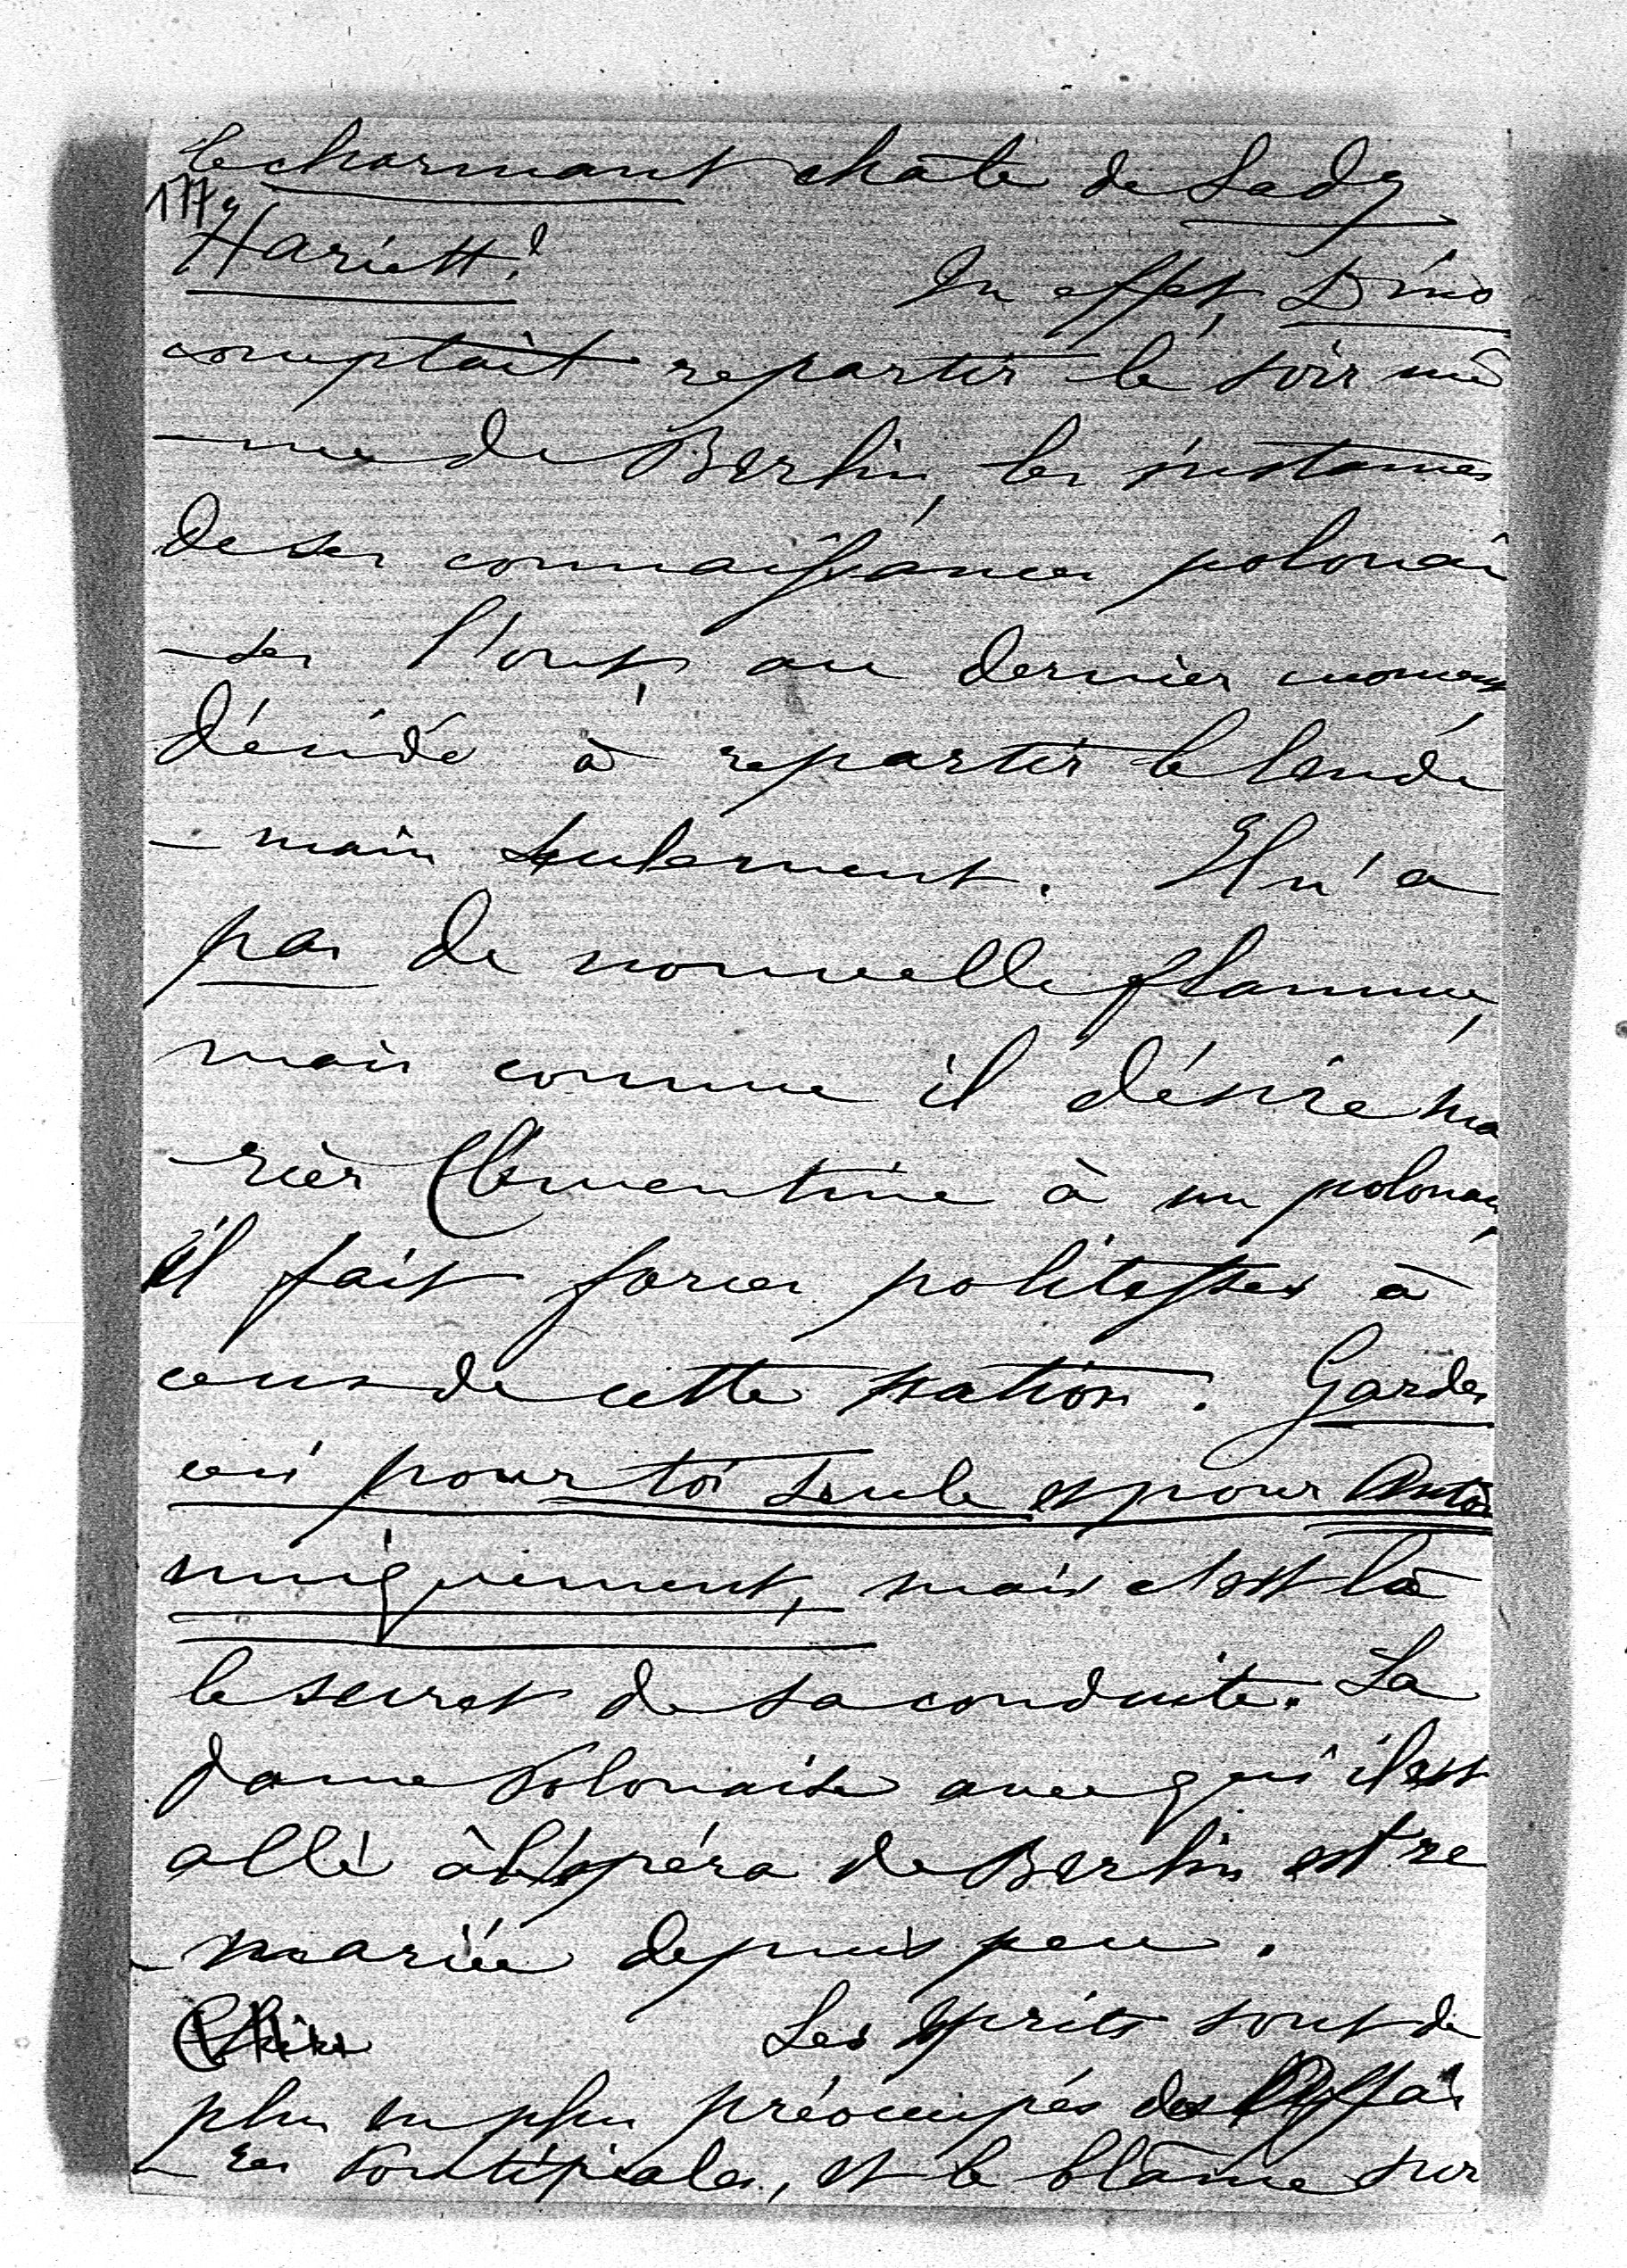 le charmant châle de Lady
177
Hariett!
En effet, Dino
comptait repartir le soir mê
-me de Berlin, les instances
de ses connaissances polonai
-ses l'ont, au dernier moment
décidé à repartir le lende
-main seulement. Il n'a
pas de nouvelle flamme,
mais comme il désire ma
-rier Clémentine à un polonais,
il fait forces politesses à
ceux de cette nation. Gardes
ceci pour toi seule et pour Antoi
uniquement, mais c'est là
le secret de sa conduite. La
dame Polonaise avec qui il est
allé à l'opéra de Berlin est re
-mariée depuis peu.
Les esprits sont de
plus en plus préoccupés des affai
-res Pontificales, et le blâme sur